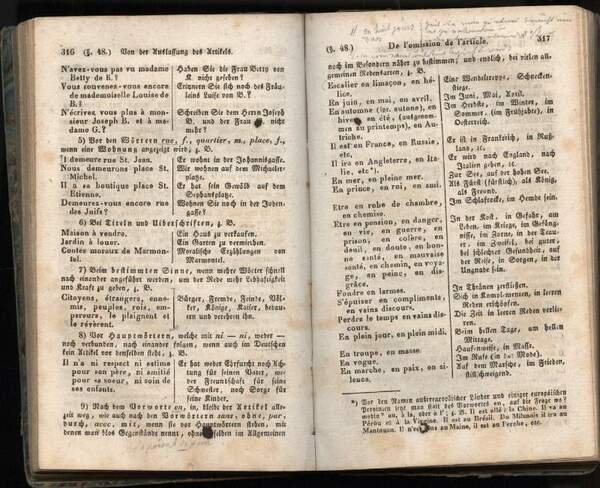 316 (§. 48.) Von der Auslassung des Artikels.
N'avez-vous pas vu madame Betty de K.?
Haben Sie die Frau Betty von K. nicht gesehen?
Vous souvenez-vous encore de mademoiselle Louise de B.?
Erinnern Sie sich noch des Fräuleins Luise von B.?
N'écrivez vous plus à monsieur Joseph B. et à madame G.?
Schreiben Sie dem Herrn Joseph B. und der Frau nicht mehr?
5) Vor den Wörtern rue, f., quartier, m., place, f.,
wenn eine Wohnung angezeigt wird, z. B.
Il demeure rue St. Jean.
Er wohnt in der Johannisgasse.
Nous demeurons place St. Michel.
Wir wohnen auf dem Michaelerplatze.
Il a sa boutique place St. Etienne.
Er hat sein Gewölb auf dem Stephansplatze.
Demeurez-vous encore rue des Juifs?
Wohnen Sie noch in der Judengasse?
6) Bei Titeln und Ueberschriften, z. B.
Maison à vendre.
Ein Haus zu verkaufen.
Jardin à louer.
Ein Garten zu vermiethen.
Contes moraux de Marmontel.
Moralische Erzählungen von Marmontel.
7) Beim bestimmten Sinne, wenn mehre Wörter schnell
nach einander angeführt werden, um der Rede mehr Lebhaftigkeit
und Kraft zu geben, z. B.
Citoyens, étrangers, ennemis, peuples, rois, empereurs, le plaignent et le révèrent.
Bürger, Fremde, Feinde, Völker, Könige, Kaiser, bedauern und verehren ihn.
8) Vor Hauptwörtern, welche mit ni — ni, weder —
noch verbunden, nach einander folgen, wenn auch im Deutschen
kein Artikel vor denselben steht, z. B.
Il n'a ni respect ni estime pour son père, ni amitié pour sa soeur, ni soin de ses enfants.
Er hat weder Ehrfurcht noch Achtung für seinen Vater, weder Freundschaft für seine Schwester, noch Sorge für seine Kinder.
9) Nach dem Vorworte en, in, bleibt der Artikel allezeit
weg, wie auch nach den Vorwörtern sans, ohne, par,
durch, avec, mit, wenn sie vor Hauptwörtern stehen, mit
denen man blos Gegenstände nennt, ohne dieselben im Allgemeinen
(§. 48.) De l'omission de l'article. 317
noch im Besondern näher zu bestimmen; und endlich, bei vielen allgemeinen
Redensarten, z. B.
Escalier en limaçon, en hélice.
Eine Wendeltreppe, Schneckenstiege.
En juin, en mai, en avril.
Im Juni, Mai, April.
En automne (spr. autone), en hiver, en été, (ausgenommen au printemps), en Autriche.
Im Herbste, im Winter, im Sommer. (im Frühjahre), in Österreich.
Il est en France, en Russie, etc.
Er ist in Frankreich, in Rußland, ꝛc.
Il ira en Angleterre, en Italie, etc*).
Er wird nach England, nach Italien gehen, ꝛc.
En mer, en pleine mer.
Zur See, auf der hohen See.
En prince, en roi, en ami.
Als Fürst (fürstlich), als König, als Freund.
Etre en robe de chambre, en chemise.
Im Schlafrocke, im Hemde sein.
Etre en pension, en danger, en vie, en guerre, en prison, en colère, en deuil, en doute, en bonne santé, en mauvaise santé, en chemin, en voyage, en peine, en disgrâce.
In der Kost, in Gefahr, am Leben, im Kriege, im Gefängnisse, im Zorne, in der Trauer, im Zweifel, bei guter, bei schlechter Gesundheit, auf der Reise, in Sorgen, in der Ungnade sein.
Fondre en larmes.
In Thränen zerfließen.
S'épuiser en compliments, en vains discours.
Sich in Komplimenten, in leeren Reden erschöpfen.
Perdre le temps en vains discours.
Die Zeit in leeren Reden verlieren.
En plein jour, en plein midi.
Beim hellen Tage, am hellen Mittage.
En troupe, en masse.
Haufenweise, in Masse.
En vogue.
Im Rufe (in der Mode).
En marche, en paix, en silence.
Auf dem Marsche, im Frieden, stillschweigend.
*) Vor den Namen außereuropäischer Länder und einiger europäischen
Provinzen setzt man statt des Vorwortes en, auf die Frage wo?
wohin? au, à la, oder à l'; z. B. Il est allé à la Chine. Il va au
Pérou et à la Virginie. Il est au Brésil. Du Milanais il ira au
Mantouan. Il n'est pas au Maine, il est au Perche, etc.